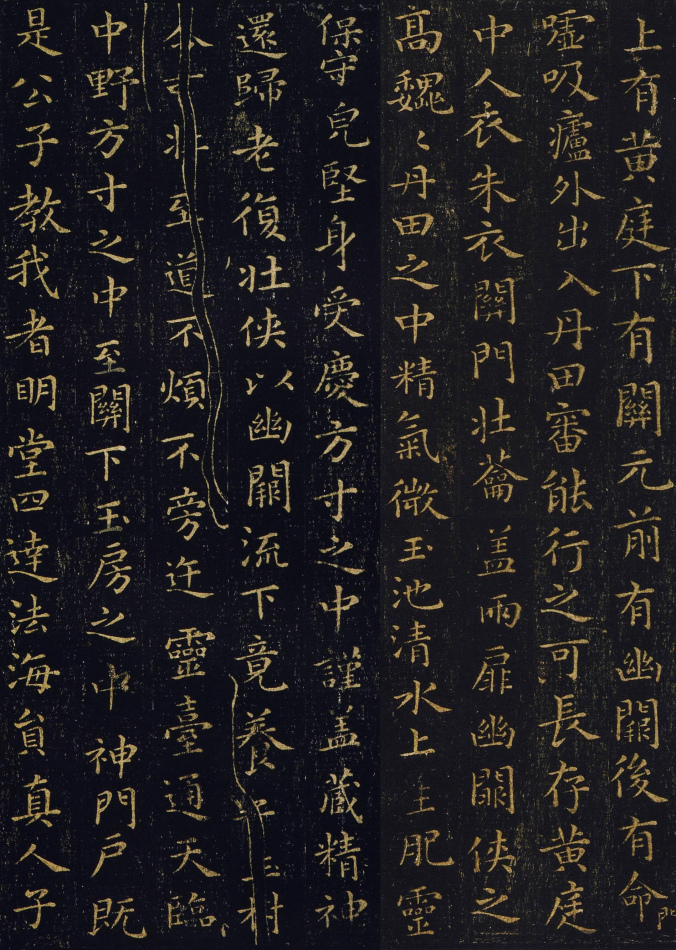 上有黄庭下有關元前有幽闕後有命門
嘘吸廬外出入丹田審能行之可長存黄庭
中人衣朱衣關門壯籥盖兩扉幽闕俠之
髙巍〻丹田之中精氣微玉池清水上生肥靈
保守皃堅身受慶方寸之中謹盖藏精神
還歸老復壯俠以幽闕流下竟養玉樹
不可非至道不煩不旁迕靈臺通天臨
中野方寸之中至關下玉房之中神門戶既
是公子教我者明堂四達法海員真人子